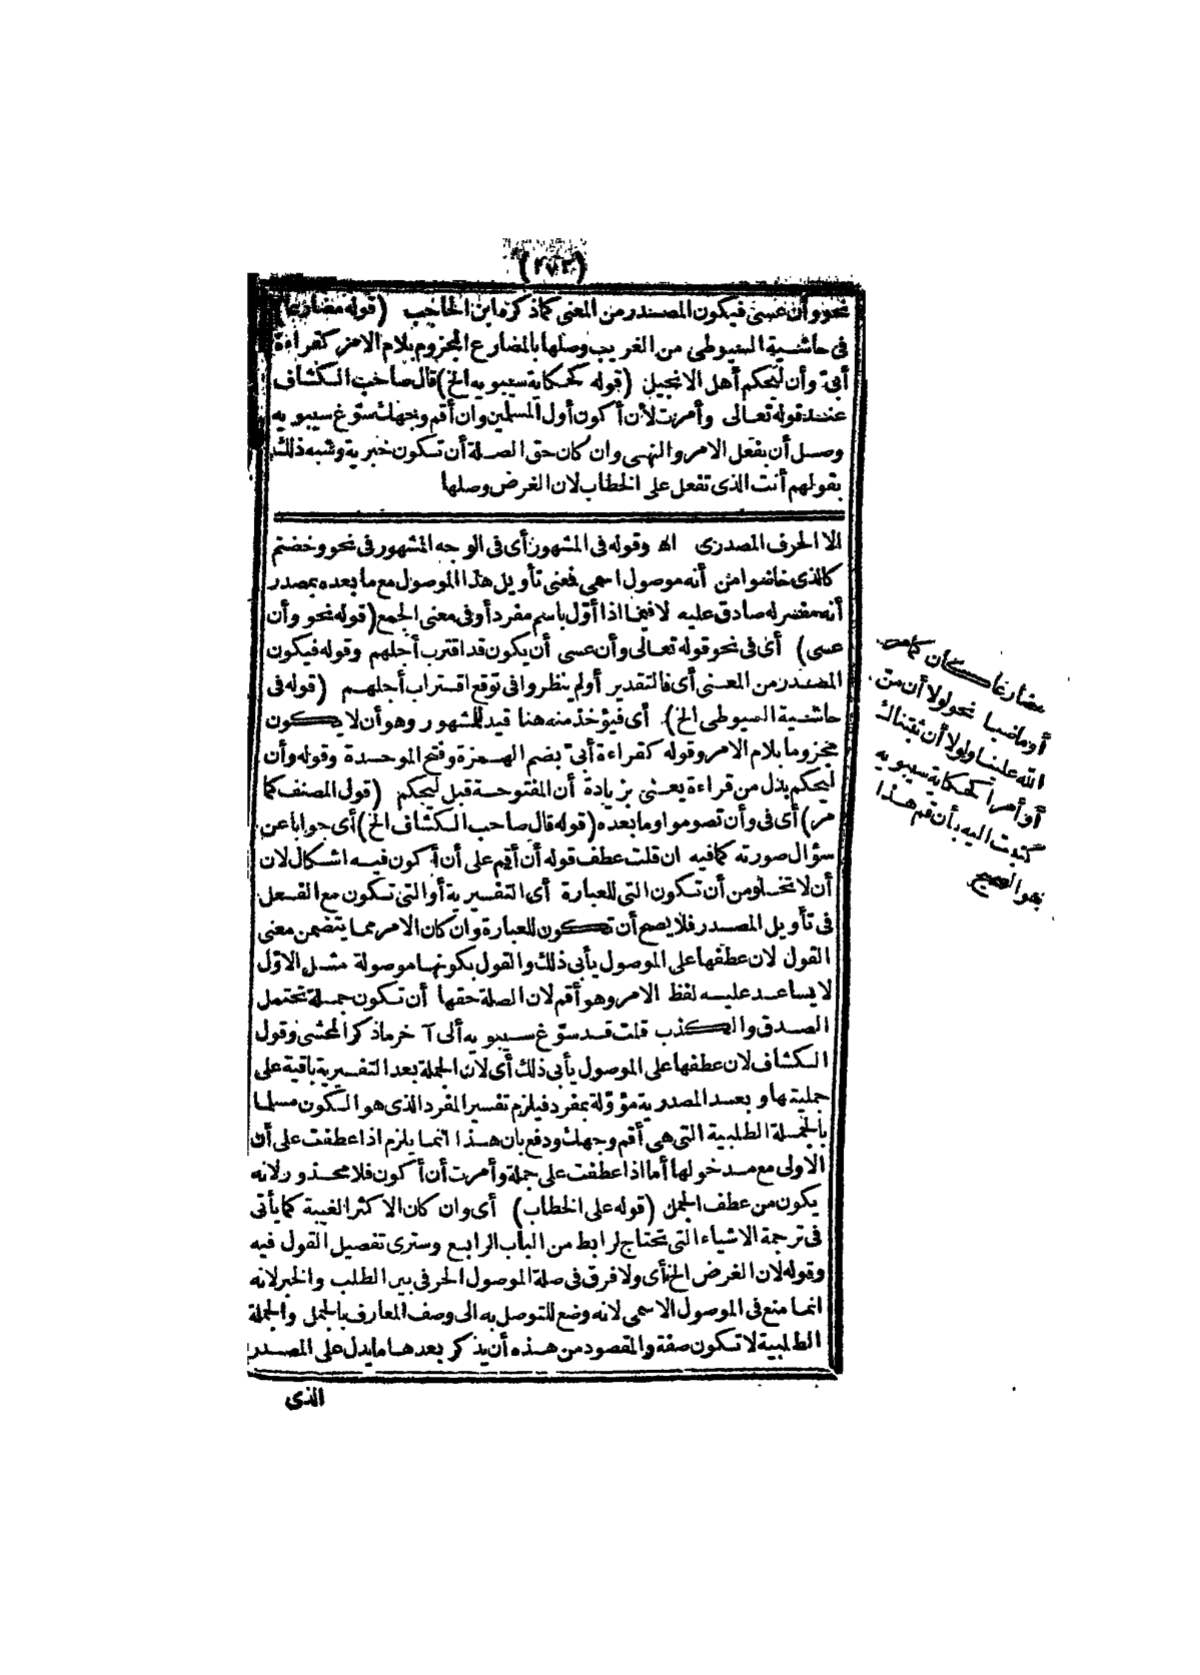 (٢٧٣)
نحو وأن عسى فيكون المصدر من المعنى كما ذكره ابن الحاجب (قوله مضارعا)
في حاشية السيوطي من الغريب وصلها بالمضارع المجزوم بلام الامر كقراءة
أبيّ وأن ليحكم أهل الانجيل (قوله كحكاية سيبويه الخ) قال صاحب الكشاف
عند قوله تعالى وأمرت لأن أكون أول المسلمين وان أقم وجهك سوّغ سيبويه
وصل أن بفعل الامر والنهي وان كان حق الصلة أن تكون خبرية وشبه ذلك
بقولهم أنت الذى تفعل على الخطاب لان الغرض وصلها
الا الحرف المصدرى اه وقوله فى المشهور أى فى الوجه المشهور فى نحو وخضتم
كالذى خاضوا من أنه موصول اسمى فمعنى تأويل هذا الموصول مع ما بعده بمصدر
أنه مفسر له صادق عليه لا فيما اذا أوّل باسم مفرد أو فى معنى الجمع (قوله نحو وأن
عسى) أى فى نحو قوله تعالى وأن عسى أن يكون قد اقترب أجلهم وقوله فيكون
المصدر من المعنى أى فالتقدير أو لم ينظروا فى توقع اقتراب أجلهم (قوله فى
حاشية السيوطى الخ) أى فيؤخذ منه هنا قيد للمشهور وهو أن لا يكون
مجزوما بلام الامر وقوله كقراءة أبىّ بضم الهمزة وفتح الموحدة وقوله وأن
ليحكم بدل من قراءة يعنى بزيادة أن المفتوحة قبل ليحكم (قول المصنف كما
مرّ) أى فى وأن تصوموا وما بعده (قوله قال صاحب الكشاف الخ) أى جوابا عن
سؤال صورته كما فيه ان قلت عطف قوله أن أقم على أن أكون فيه اشكال لان
أن لا تخلو من أن تكون التى للعبارة أى التفسيرية أو التى تكون مع الفعل
فى تأويل المصدر فلا يصح أن تكون للعبارة وان كان الامر مما يتضمن معنى
القول لان عطفها على الموصول يأبى ذلك والقول بكونها موصولة مثل الاوّل
لا يساعد عليه لفظ الامر وهو أقم لان الصلة حقها أن تكون جملة تحتمل
الصدق والكذب قلت قد سوّغ سيبويه الى آخر ما ذكر المحشى وقول
الكشاف لان عطفها على الموصول يأبى ذلك أى لان الجملة بعد التفسيرية باقية على
جمليتها وبعد المصدرية مؤوّلة بمفرد فيلزم تفسير المفرد الذى هو الكون مسلما
بالجملة الطلبية التى هى أقم وجهك ودفع بان هذا انما يلزم اذا عطفت على أن
الاولى مع مدخولها أما اذا عطفت على جملة وأمرت أن أكون فلا محذور لانه
يكون من عطف الجمل (قوله على الخطاب) أى وان كان الاكثر الغيبة كما يأتى
فى ترجمة الاشياء التى تحتاج لرابط من الباب الرابع وسترى تفصيل القول فيه
وقوله لان الغرض الخ أى ولا فرق فى صلة الموصول الحرفى بين الطلب والخبر لانه
انما منع فى الموصول الاسمى لانه وضع للتوصل به الى وصف المعارف بالجمل والجملة
الطلبية لا تكون صفة والمقصود من هذه أن يذكر بعدها ما يدل على المصدر
الذى
مضارعا كان كما مر
أو ماضيا نحو لولا أن من
الله علينا ولولا أن ثبتناك
أو أمرا كحكاية سيبويه
كتبت اليه بأن قم هذا
هو الصحيح